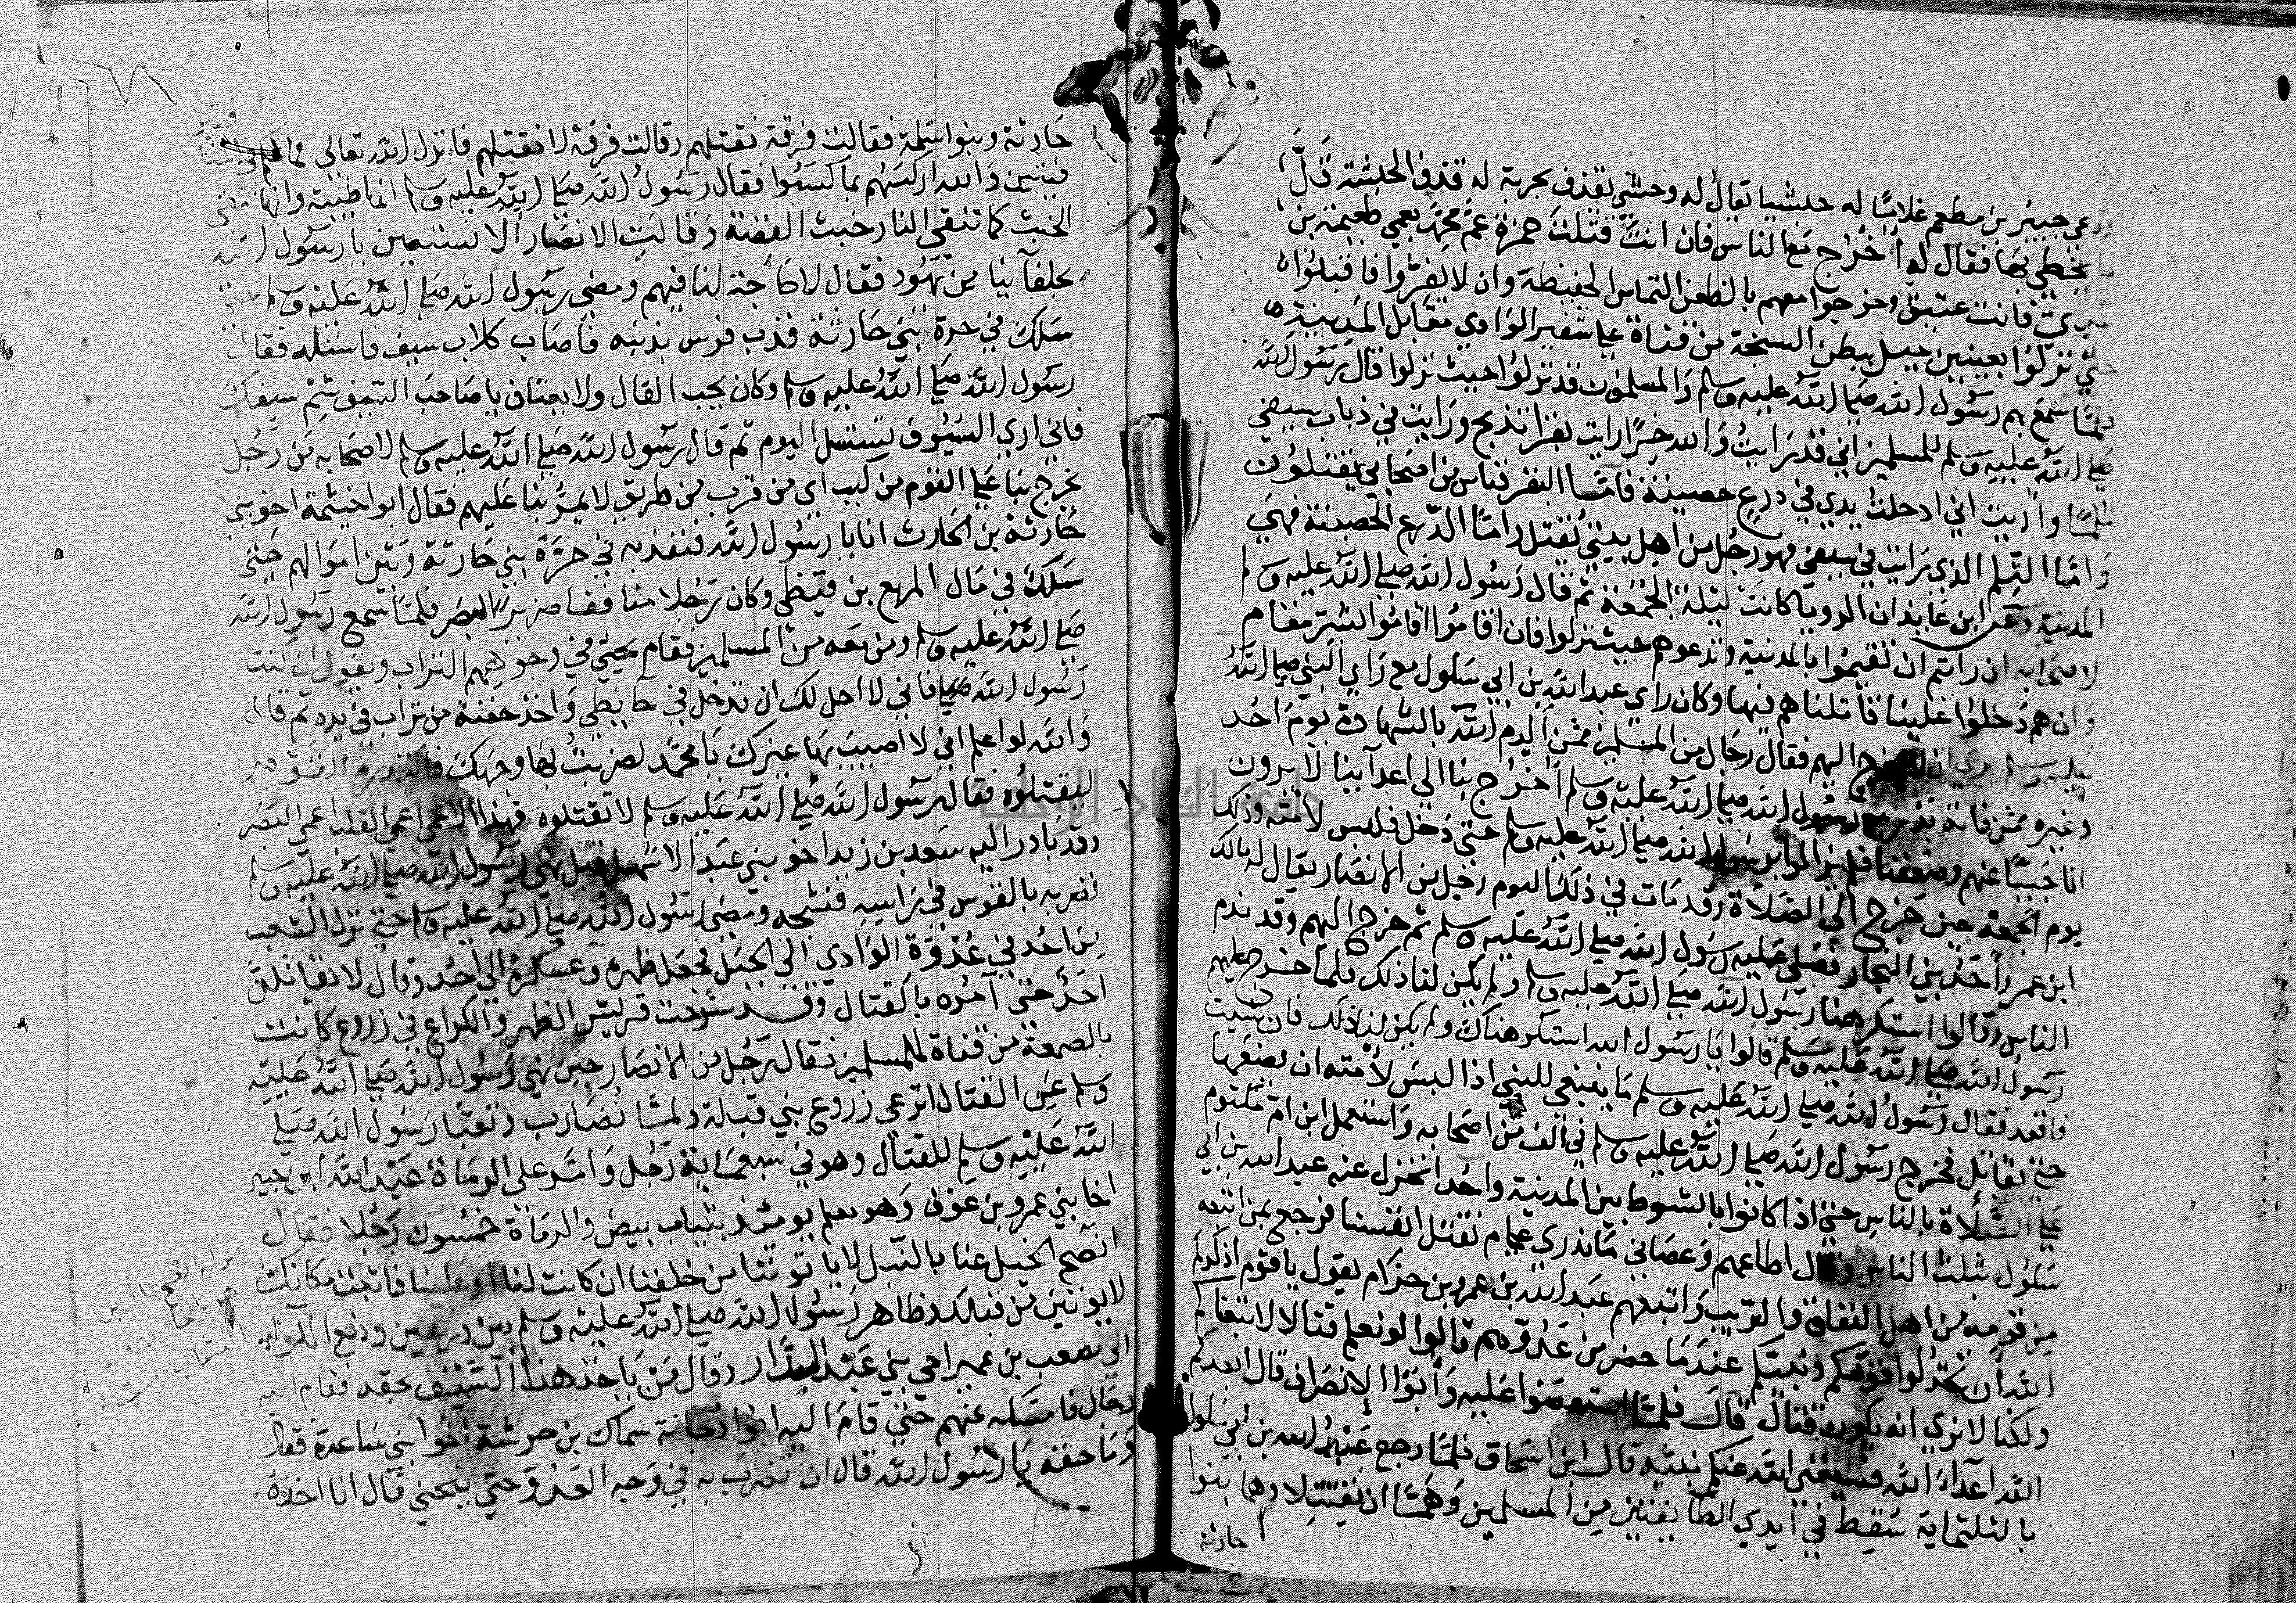 ودعى جبير بن مطعم غلامًا له حبشيا يقال له وحشي يقذف بحربة له قذف الحبشة قل ما
يخطي بها فقال له أخرج مع الناس فان انت قتلت حمزة عم محمد بعمي طعيمة بن
عدي فانت عتيق وخرجوا معهم بالظعن التماس الحفيظة وان لا يفروا فاقبلوا
حتى نزلوا بعينين جبل ببطن السبخة من قناة على شفير الوادي مقابل المدينة
فلما سمع بهم رسول الله صلى الله عليه وسلم والمسلمون قد نزلوا حيث نزلوا قال رسول الله
صلى الله عليه وسلم للمسلمين اني قد رايت والله خيرًا رايت بقرا تذبح ورايت في ذباب سيفي
ثلمًا واريت اني ادخلت يدي في درع حصينة فاما البقر فناس من اصحابي يقتلون
واما الثلم الذي رايت في سيفي فهو رجل من اهل بيتي يقتل واما الدرع الحصينة فهي
المدينة وعن ابن عايذ ان الرويا كانت ليلة الجمعة ثم قال رسول الله صلى الله عليه وسلم
لاصحابه ان رأيتم ان تقيموا بالمدينة وتدعوهم حيث نزلوا فان اقاموا اقاموا بشر مقام
وان هم دخلوا علينا قاتلناهم فيها وكان راي عبد الله بن ابي سلول مع راي النبي صلى الله
عليه وسلم يرى ان لا يخرج اليهم فقال رجال من المسلمين ممن اكرم الله بالشهادة يوم احد
وغيره ممن فاته بدر يا رسول الله صلى الله عليه وسلم أخرج بنا الى اعدآينا لا يرون
انا جبنّا عنهم وضعفنا فلم يزالوا برسول الله صلى الله عليه وسلم حتى دخل فلبس لامته وذلك
يوم الجمعة حين خرج الى الصلاة وقد مات في ذلك اليوم رجل من الانصار يقال له مالك
ابن عمرو أحد بني النجار فصلى عليه رسول الله صلى الله عليه وسلم ثم خرج اليهم وقد ندم
الناس وقالوا استكرهنا رسول الله صلى الله عليه وسلم ولم يكن لنا ذلك فلما خرج عليهم
رسول الله صلى الله عليه وسلم قالوا يا رسول الله استكرهناك ولم يكن لنا ذلك فان شيت
فاقعد فقال رسول الله صلى الله عليه وسلم ما ينبغي للنبي اذا لبس لأمته ان يضعها
حتى يقاتل فخرج رسول الله صلى الله عليه وسلم في ألف من اصحابه واستعمل ابن ام مكتوم
على الصلاة بالناس حتى اذا كانوا بالشوط بين المدينة وأحد انخزل عنه عبد الله بن ابي
سلول بثلث الناس وقال اطاعهم وعصاني ما ندري علام نقتل انفسنا فرجع بمن اتبعه
من قومه من اهل النفاق والريب واتبعهم عبد الله بن عمرو بن حرام يقول يا قوم اذكركم
الله أن تخذلوا قومكم ونبيكم عندما حضر من عدوهم قالوا لو نعلم قتالا لاتبعناكم
ولكنا لا نري انه يكون قتال قال فلما استعصوا عليه وأبوا الا الانصراف قال ابعدكم
الله اعدآء الله فسيغني الله عنكم نبيه قال ابن اسحاق فلما رجع عبد الله بن ابي سلول
بالثلثماية سقط في ايدي الطايفتين من المسلمين وهمتا ان تفشلا وهما بنوا
حارثة
حارثة وبنوا سلمة فقالت فرقة نقتلهم وقالت فرقة لا نقتلهم فانزل الله تعالى فما لكم في المنافقين
فئتين والله اركسهم بما كسبوا فقال رسول الله صلى الله عليه وسلم انها طيبة وانها تنفي
الخبث كما تنفي النار خبث الفضة وقالت الانصار ألا نستعين يا رسول الله
بحلفآينا من يهود فقال لا حاجة لنا فيهم ومضى رسول الله صلى الله عليه وسلم حتى
سلك في حرة بني حارثة فذب فرس بذنبه فاصاب كلاب سيف فاستله فقال
رسول الله صلى الله عليه وسلم وكان يحب الفال ولا يعتاف يا صاحب السيف شم سيفك
فاني اري السيوف تستسل اليوم ثم قال رسول الله صلى الله عليه وسلم لاصحابه من رجل
يخرج بنا على القوم من كثب اي من قرب من طريق لا يمر بنا عليهم فقال ابو خيثمة اخو بني
حارثة بن الحارث انا يا رسول الله فنفذ به في حرة بني حارثة وبين اموالهم حتى
سلك في مال المربع بن قيظي وكان رجلا منافقا ضرير البصر فلما سمع رسول الله
صلى الله عليه وسلم ومن معه من المسلمين فقام يحثي في وجوههم التراب ويقول ان كنت
رسول الله فاني لا احل لك ان تدخل في حايطي واخذ حفنة من تراب في يده ثم قال
والله لو اعلم اني لا اصيب بها غيرك يا محمد لضربت بها وجهك فابتدره القوم
ليقتلوه فقال رسول الله صلى الله عليه وسلم لا تقتلوه فهذا الاعمى اعمى القلب اعمى البصر
وقد بادر اليه سعد بن زيد اخو بني عبد الاشهل قبل نهي رسول الله صلى الله عليه وسلم
فضربه بالقوس في راسه فشجه ومضى رسول الله صلى الله عليه وسلم حتى نزل الشعب
من احد في عدوة الوادي الى الجبل فجعل ظهره وعسكره الى احد وقال لا يقاتلن
احد حتى آمره بالقتال وقد سرحت قريش الظهر والكراع في زروع كانت
بالصمغة من قناة للمسلمين فقال رجل من الانصار حين نهى رسول الله صلى الله عليه
وسلم عن القتال اترعى زروع بني قيلة ولما نضارب وتعبا رسول الله صلى
الله عليه وسلم للقتال وهو في سبعماية رجل وامر على الرماة عبد الله ابن جبير
اخا بني عمرو بن عوف وهو معلم يومئذ بثياب بيض والرماة خمسون رجلا فقال
انضح الخيل عنا بالنبل لا ياتوننا من خلفنا ان كانت لنا او علينا فاثبت مكانك
لا يوتين من قبلك وظاهر رسول الله صلى الله عليه وسلم بين درعين ودفع اللوآء
الى مصعب بن عمير اخي بني عبد الدار وقال من ياخذ هذا السيف بحقه فقام اليه
رجال فامسكه عنهم حتى قام اليه ابو دجانة سماك بن خرشة اخو بني ساعدة فقال
وما حقه يا رسول الله قال ان تضرب به في وجه العدو حتى ينحني قال انا اخذه